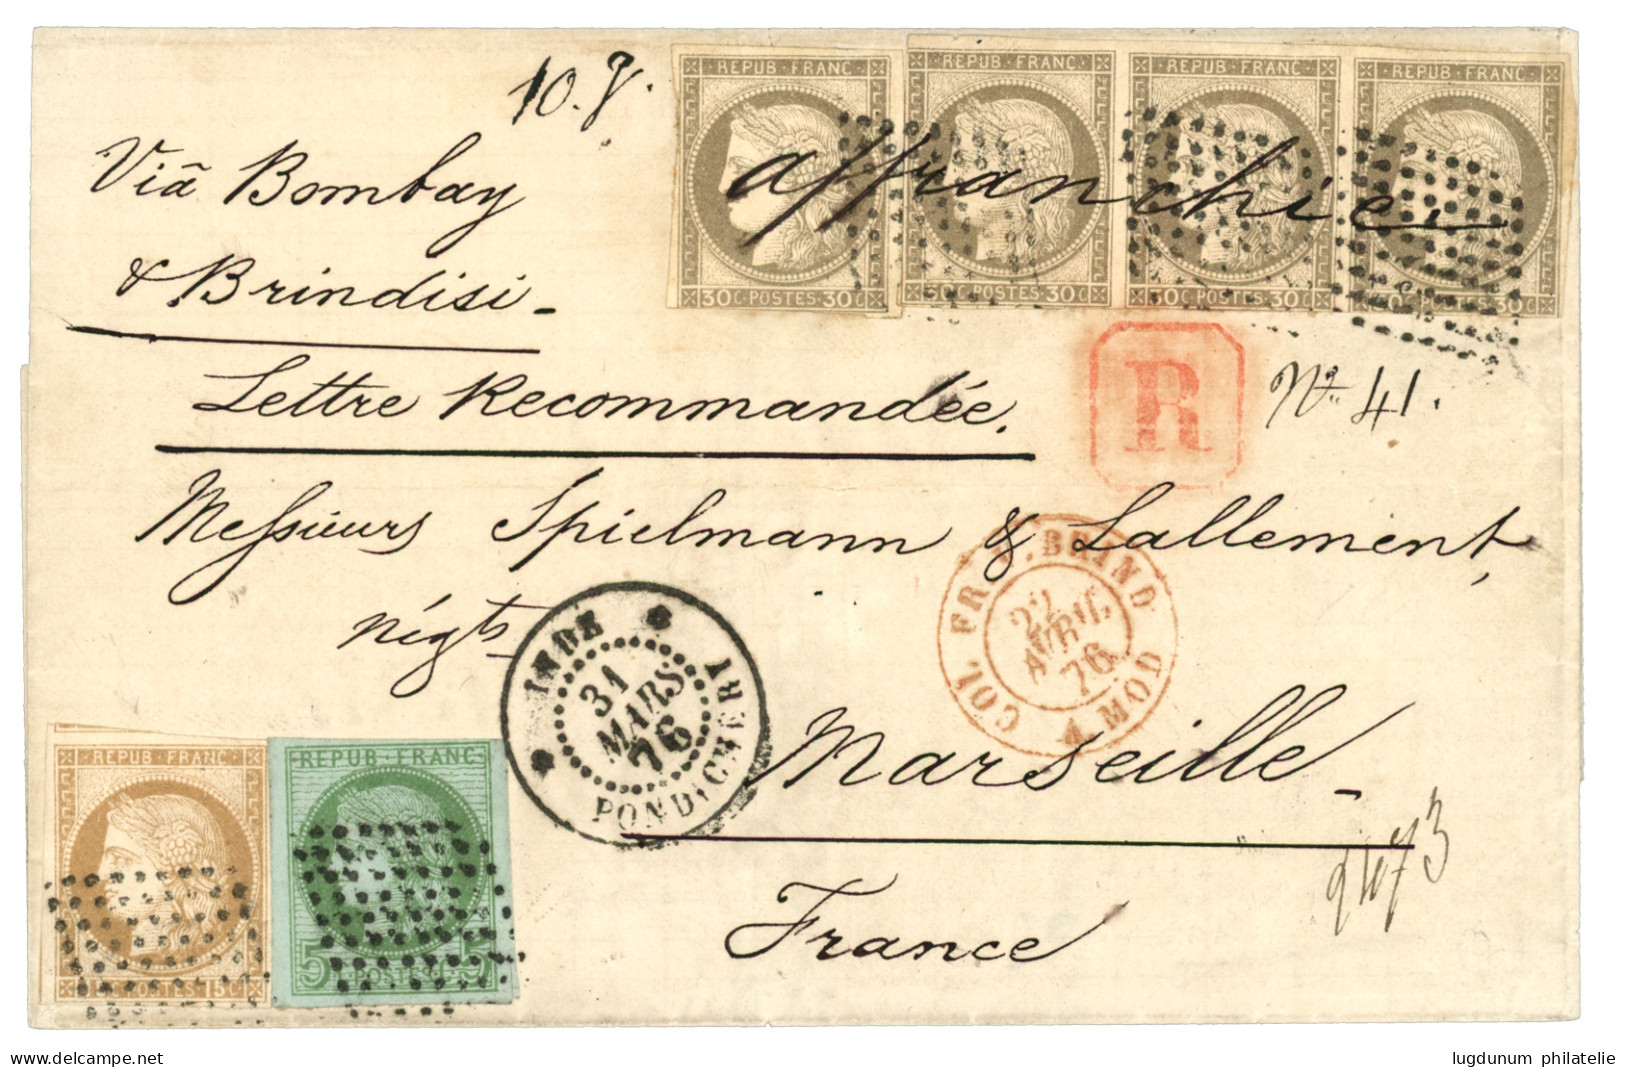 10. g.
REPUB · FRANC
REPUB · FRANC
REPUB · FRANC
REPUB · FRANC
affranchie.
30 C · POSTES · 30 C
30 C · POSTES · 30 C
30 C · POSTES · 30 C
30 C · POSTES · 30 C
Viâ Bombay
& Brindisi -
Lettre Recommandée.
R
No. 41.
Messieurs Spielmann & Lallement,
négts
INDE
31
MARS
76
PONDICHERY
COL. FR. V. BRIND
22
AVRIL
76
A. MOD
Marseille -
France
REPUB · FRANC
15 C · POSTES · 15 C
REPUB · FRANC
5 · POSTES · 5
delcampe.net
lugdunum philatelie